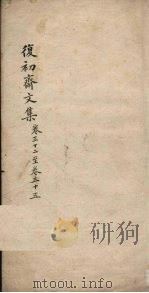 復初齋文集 卷三十二至卷三十五
mtoou.info
mtoou.info